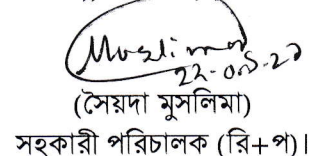 Muslima
(সৈয়দা মুসলিমা)
সহকারী পরিচালক (রি+প)।